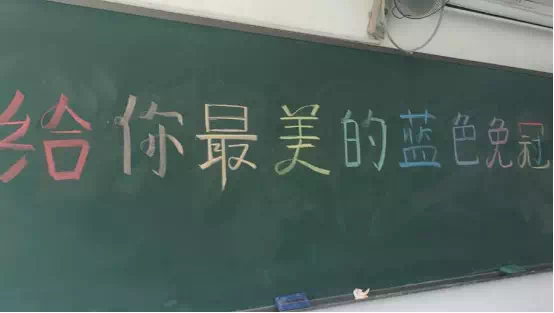 给你最美的蓝色免冠